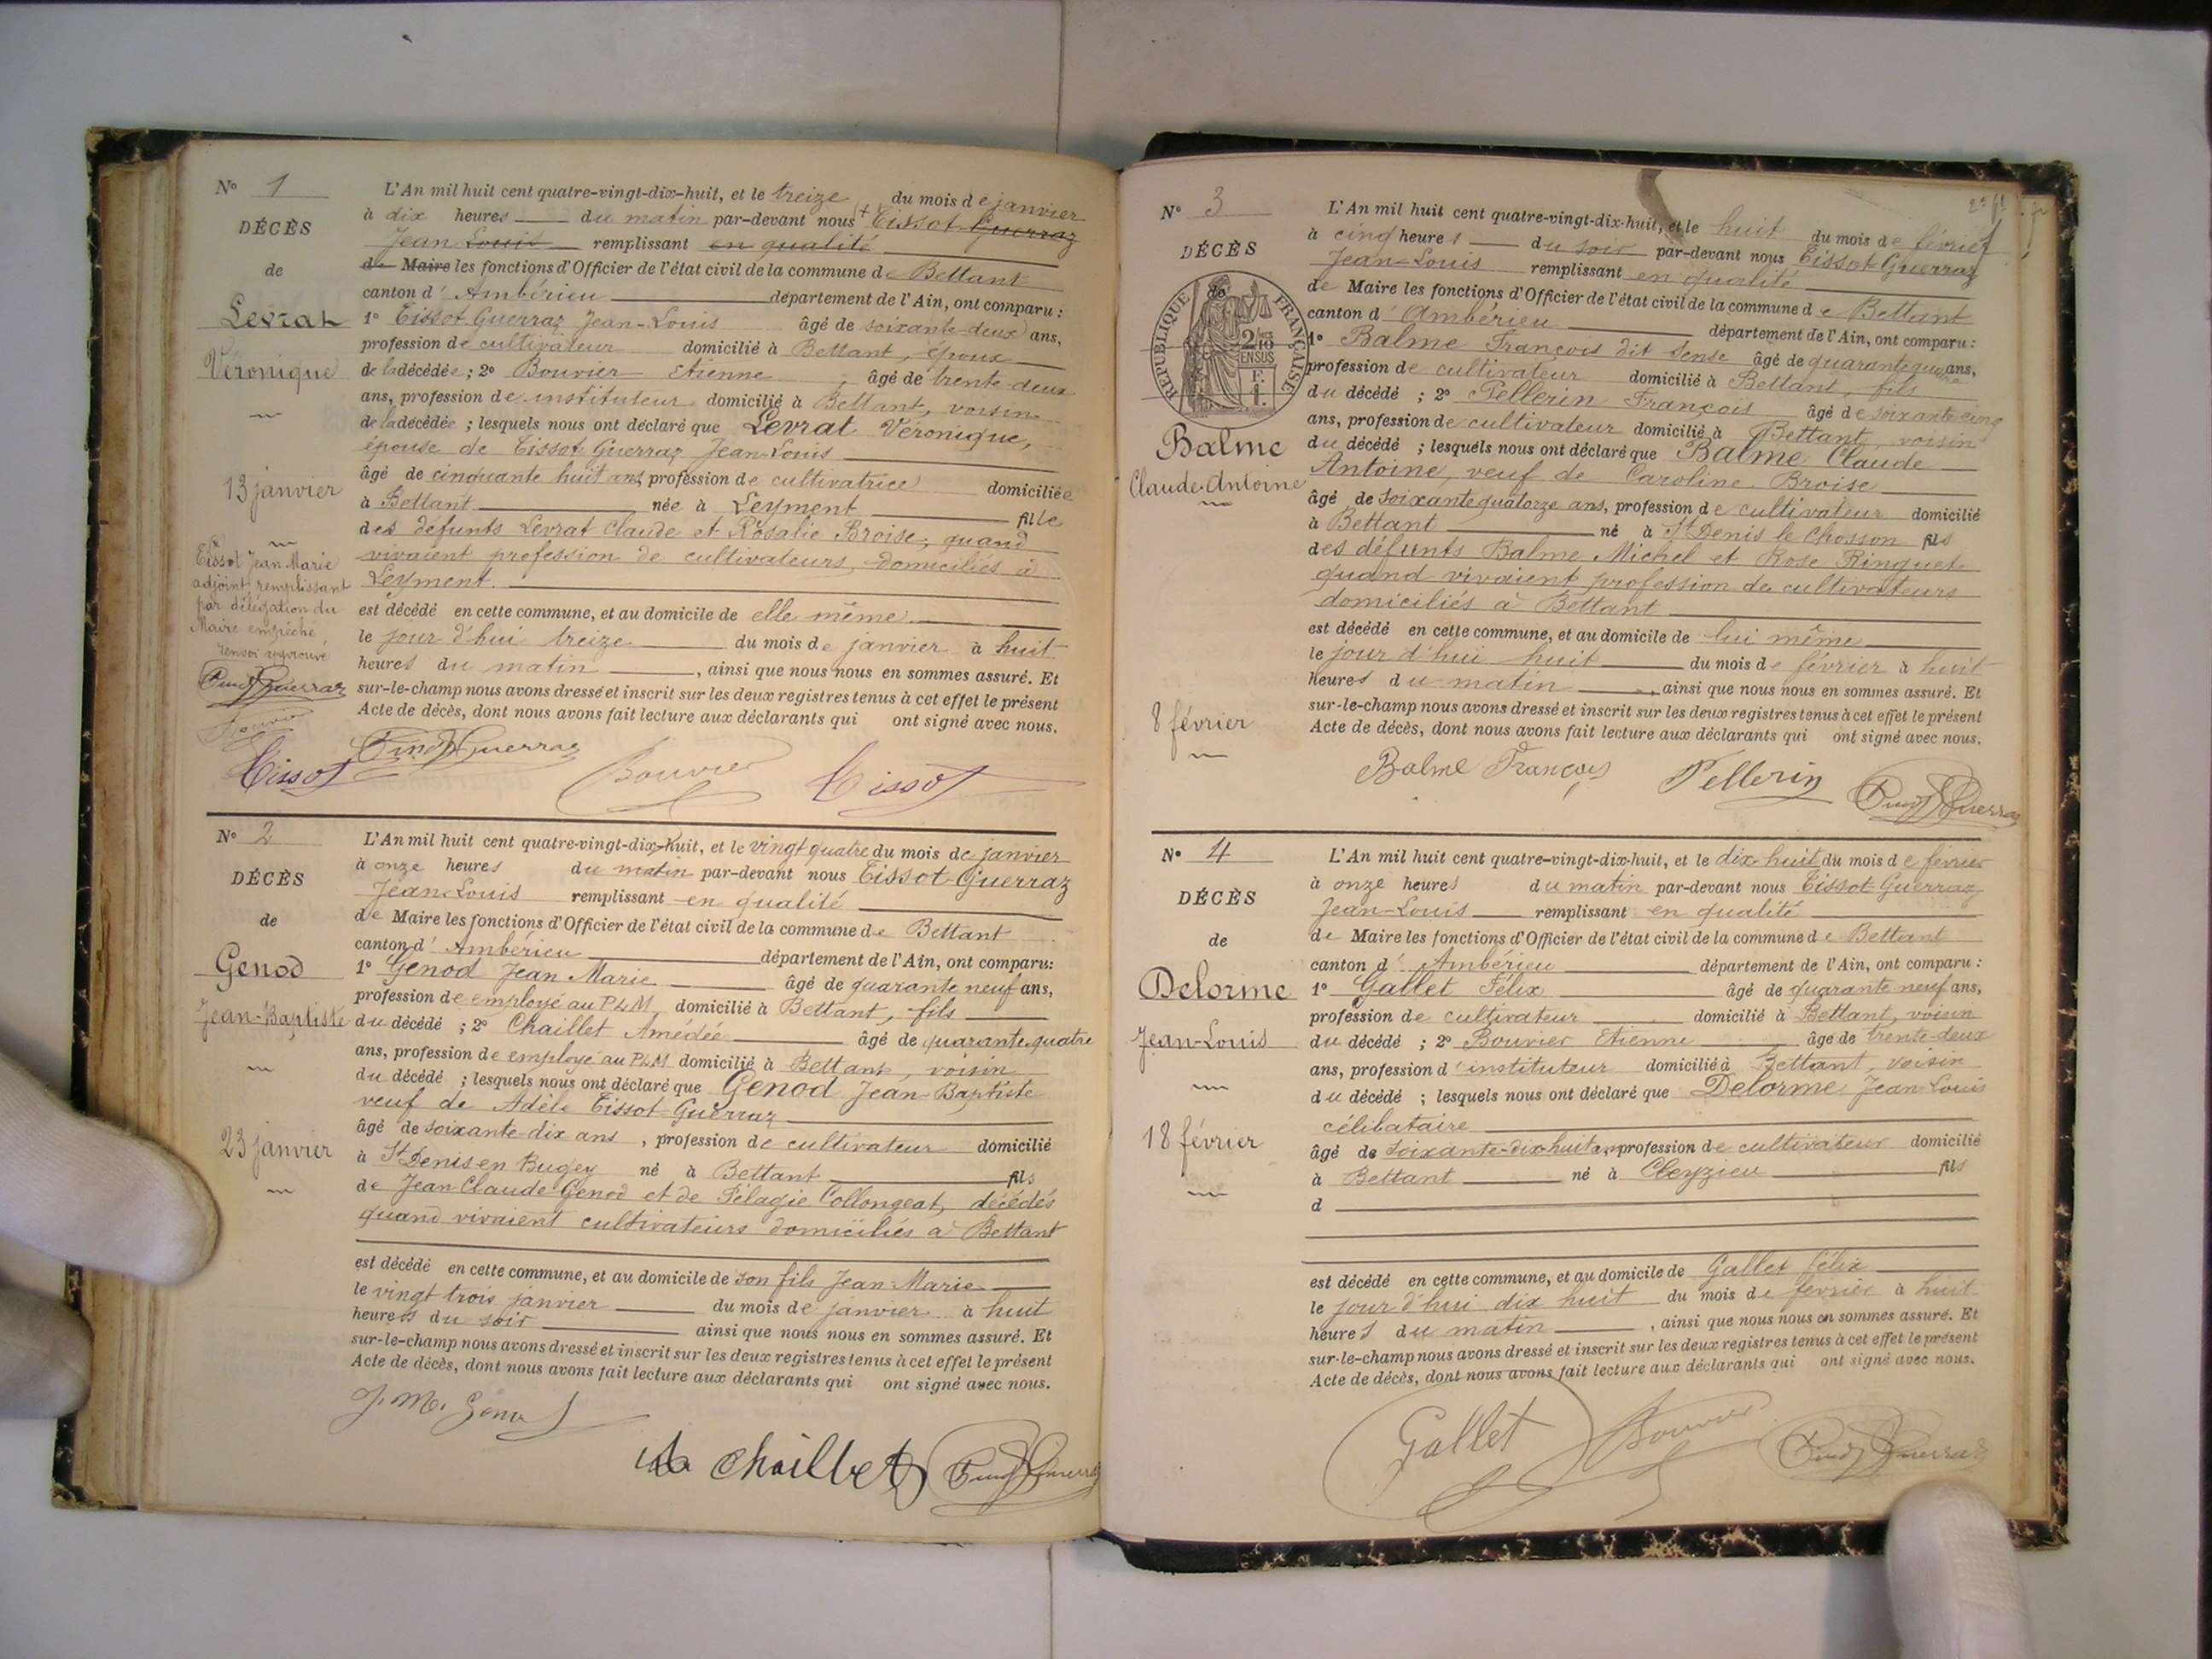 N° 1
DÉCÈS
de
Levrat
Véronique
13 janvier
Tissot Jean Marie
adjoint remplissant
par délégation du
Maire empêché,
renvoi approuvé
Bouvier
L'An mil huit cent quatre-vingt-dix-huit, et le treize du mois de janvier
à dix heures du matin par-devant nous Tissot Guerraz
Jean Louis remplissant en qualité
de Maire les fonctions d'Officier de l'état civil de la commune de Bettant
canton d'Ambérieu département de l'Ain, ont comparu :
1° Tissot Guerraz Jean-Louis âgé de soixante-deux ans,
profession de cultivateur domicilié à Bettant, époux
de la décédée ; 2° Bouvier Etienne, âgé de trente-deux
ans, profession de instituteur domicilié à Bettant, voisin
de la décédée ; lesquels nous ont déclaré que Levrat Véronique,
épouse de Tissot Guerraz Jean-Louis
âgé de cinquante huit ans, profession de cultivatrice domiciliée
à Bettant née à Leyment fille
des défunts Levrat Claude et Rosalie Broise, quand
vivaient profession de cultivateurs, domiciliés à
Leyment.
est décédé en cette commune, et au domicile de elle même
le jour d'hui treize du mois de janvier à huit
heures du matin, ainsi que nous nous en sommes assuré. Et
sur-le-champ nous avons dressé et inscrit sur les deux registres tenus à cet effet le présent
Acte de décès, dont nous avons fait lecture aux déclarants qui ont signé avec nous.
Tissot Guerraz Bouvier Tissot
N° 2
DÉCÈS
de
Genod
Jean-Baptiste
23 janvier
L'An mil huit cent quatre-vingt-dix-huit, et le vingt quatre du mois de janvier
à onze heures du matin par-devant nous Tissot-Guerraz
Jean-Louis remplissant en qualité
de Maire les fonctions d'Officier de l'état civil de la commune de Bettant
canton d'Ambérieu département de l'Ain, ont comparu:
1° Genod Jean Marie âgé de quarante neuf ans,
profession de employé au PLM, domicilié à Bettant, fils
du décédé ; 2° Chaillet Amédée âgé de quarante quatre
ans, profession de employé au PLM domicilié à Bettant, voisin
du décédé ; lesquels nous ont déclaré que Genod Jean-Baptiste
veuf de Adèle Tissot-Guerraz
âgé de soixante-dix ans, profession de cultivateur domicilié
à St Denis en Bugey né à Bettant fils
de Jean Claude Genod et de Pélagie Collongeat, décédés
quand vivaient cultivateurs domiciliés à Bettant
est décédé en cette commune, et au domicile de son fils Jean-Marie
le vingt trois janvier du mois de janvier à huit
heures du soir ainsi que nous nous en sommes assuré. Et
sur-le-champ nous avons dressé et inscrit sur les deux registres tenus à cet effet le présent
Acte de décès, dont nous avons fait lecture aux déclarants qui ont signé avec nous.
J. M. Genod
Chaillet Guerraz
N° 3
DÉCÈS
de
RÉPUBLIQUE FRANÇAISE
2/10
EN SUS
F.
1.
Balme
Claude-Antoine
8 février
L'An mil huit cent quatre-vingt-dix-huit, et le huit du mois de février
à cinq heures du soir par-devant nous Tissot-Guerraz
Jean-Louis remplissant en qualité
de Maire les fonctions d'Officier de l'état civil de la commune de Bettant
canton d'Ambérieu département de l'Ain, ont comparu :
1° Balme François dit Sense âgé de quarante quatre ans,
profession de cultivateur domicilié à Bettant, fils
du décédé ; 2° Pellerin François âgé de soixante cinq
ans, profession de cultivateur domicilié à Bettant, voisin
du décédé ; lesquels nous ont déclaré que Balme Claude
Antoine, veuf de Caroline Broise
âgé de soixante quatorze ans, profession de cultivateur domicilié
à Bettant né à St Denis le Chosson fils
des défunts Balme Michel et Rose Ringuet
quand vivaient profession de cultivateurs
domiciliés à Bettant
est décédé en cette commune, et au domicile de lui même
le jour d'hui huit du mois de février à huit
heures du matin, ainsi que nous nous en sommes assuré. Et
sur-le-champ nous avons dressé et inscrit sur les deux registres tenus à cet effet le présent
Acte de décès, dont nous avons fait lecture aux déclarants qui ont signé avec nous.
Balme François Pellerin Guerraz
N° 4
DÉCÈS
de
Delorme
Jean-Louis
18 février
L'An mil huit cent quatre-vingt-dix-huit, et le dix-huit du mois de février
à onze heures du matin par-devant nous Tissot-Guerraz
Jean-Louis remplissant en qualité
de Maire les fonctions d'Officier de l'état civil de la commune de Bettant
canton d'Ambérieu département de l'Ain, ont comparu :
1° Gallet Félix âgé de quarante neuf ans,
profession de cultivateur domicilié à Bettant, voisin
du décédé ; 2° Bouvier Etienne âgé de trente-deux
ans, profession d'instituteur domicilié à Bettant, voisin
du décédé ; lesquels nous ont déclaré que Delorme Jean-Louis
célibataire
âgé de soixante-dix-huit ans, profession de cultivateur domicilié
à Bettant né à Cleyzieu fils
d
est décédé en cette commune, et au domicile de Gallet Félix
le jour d'hui dix huit du mois de février à huit
heures du matin, ainsi que nous nous en sommes assuré. Et
sur-le-champ nous avons dressé et inscrit sur les deux registres tenus à cet effet le présent
Acte de décès, dont nous avons fait lecture aux déclarants qui ont signé avec nous.
Gallet Bouvier Guerraz